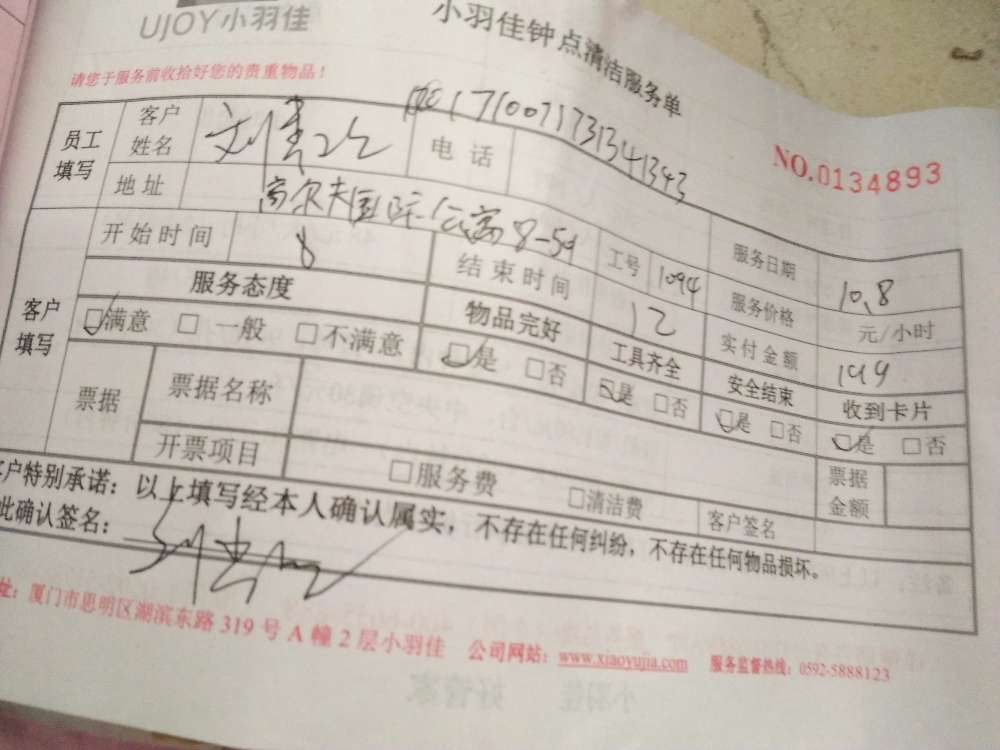 UJOY小羽佳
小羽佳钟点清洁服务单
请您于服务前收拾好您的贵重物品！
NO.0134893
员工填写 客户姓名 电话 1710071731341343
地址 高尔夫国际公寓8-5d 工号 1094 服务日期 10.8
客户填写 开始时间 8 结束时间 12 服务价格 元/小时
服务态度 物品完好 工具齐全 实付金额 199
安全结束 收到卡片
满意 一般 不满意 是 否 是 否 是 否 是 否
票据 票据名称 票据金额
开票项目 服务费 清洁费 客户签名
客户特别承诺：以上填写经本人确认属实，不存在任何纠纷，不存在任何物品损坏。
此确认签名：
址：厦门市思明区湖滨东路 319 号 A 幢 2 层小羽佳 公司网站：www.xiaoyujia.com 服务监督热线：0592-5888123